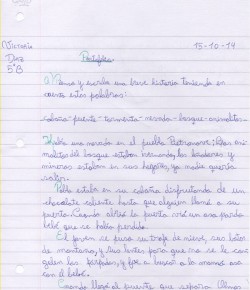 Victoria
Díaz
5°B
15-10-14
Portafolio
Piensa y escribe una breve historia teniendo en
cuenta estas palabras:
cabaña - puente - tormenta - nevada - bosque - animalitos.
Había una nevada en el pueblo. Los ani-
malitos del bosque estaban invernando, los leñadores y
mineros estaban en sus hogares, ya nadie quería
salir.
Pablo estaba en su cabaña disfrutando de un
chocolate caliente hasta que alguien llamó a su
puerta. Cuando abrió la puerta vió un oso pardo
bebé que se había perdido.
El joven se puso su traje de nieve, sus botas
de montaña, y sus para que no se le con-
gelen los, y fue a buscar a la mamá osa
con el bebé.
Cuando llegó al puente que